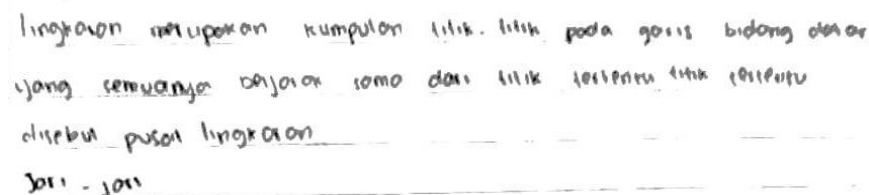 lingkaran merupakan kumpulan titik-titik pada garis bidang datar
yang semuanya berjarak sama dari titik tertentu titik tertentu
disebut pusat lingkaran
Jari-jari